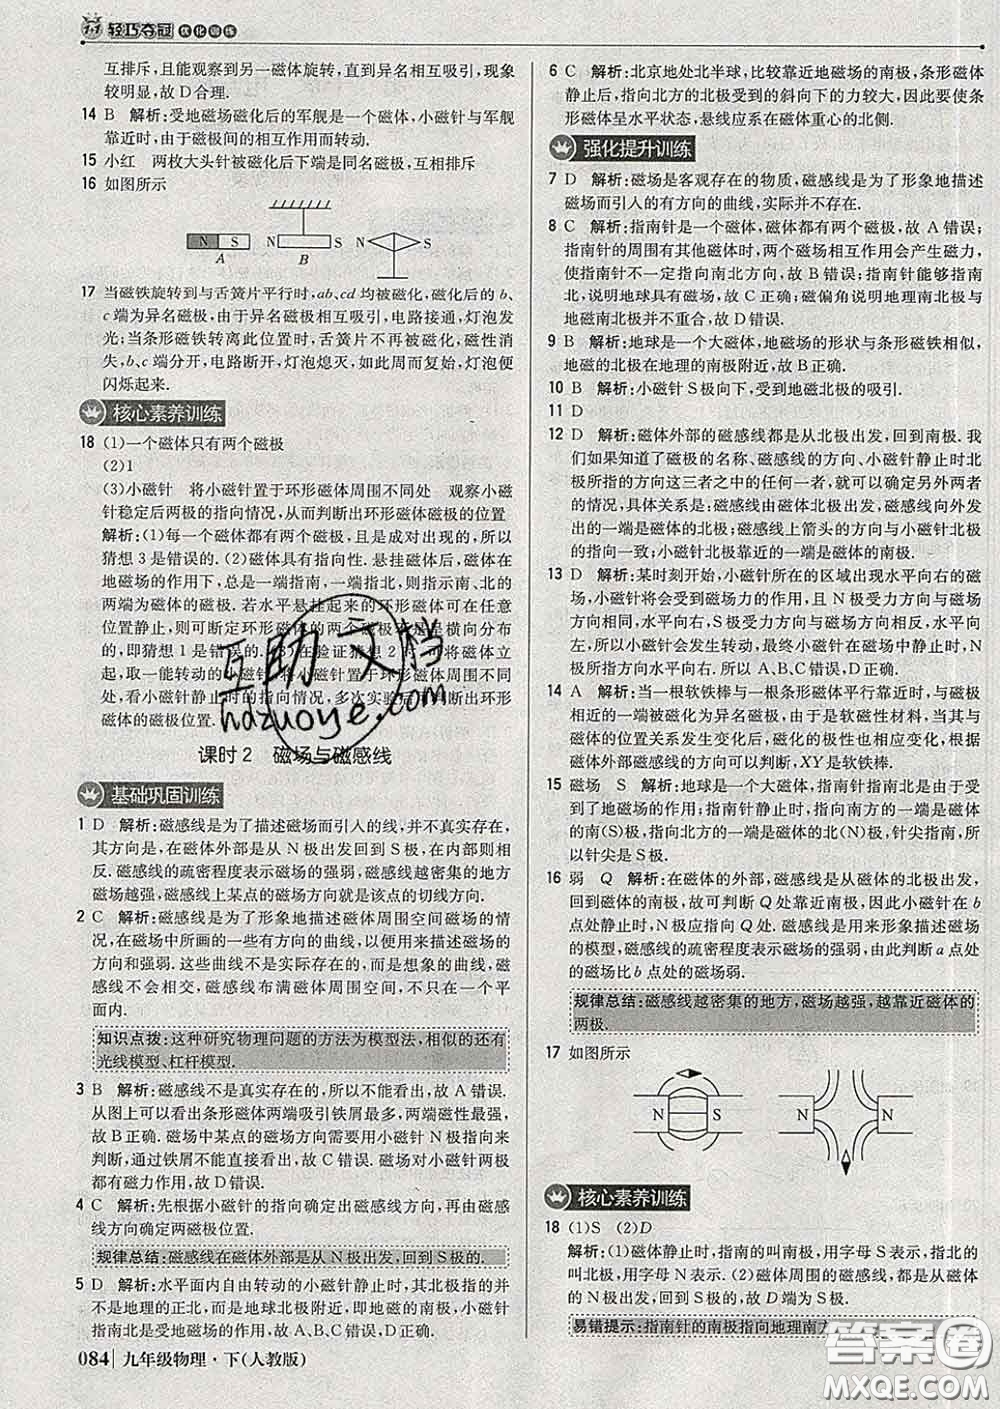 轻巧夺冠 优化训练
互排斥,且能观察到另一磁体旋转,直到异名相互吸引,现象
较明显,故D合理.
14 B 解析:受地磁场磁化后的军舰是一个磁体,小磁针与军舰
靠近时,由于磁极间的相互作用而转动.
15 小红 两枚大头针被磁化后下端是同名磁极,互相排斥
16 如图所示
N S
A
N S
B
N S
17 当磁铁旋转到与舌簧片平行时,ab、cd均被磁化,磁化后的b、
c端为异名磁极,由于异名磁极相互吸引,电路接通,灯泡发
光;当条形磁铁转离此位置时,舌簧片不再被磁化,磁性消
失,b、c端分开,电路断开,灯泡熄灭,如此周而复始,灯泡便
闪烁起来.
核心素养训练
18 (1)一个磁体只有两个磁极
(2)1
(3)小磁针 将小磁针置于环形磁体周围不同处 观察小磁
针稳定后两极的指向情况,从而判断出环形磁体磁极的位置
解析:(1)每一个磁体都有两个磁极,且是成对出现的,所以
猜想3是错误的.(2)磁体具有指向性.悬挂磁体后,磁体在
地磁场的作用下,总是一端指南,一端指北,则指示南、北的
两端为磁体的磁极.若水平悬挂起来的环形磁体可在任意
位置静止,则可断定环形磁体的两个磁极不是横向分布
的,即猜想1是错误的.(3)在验证猜想2时,可将磁体立
起,取一能转动的小磁针,将小磁针置于环形磁体周围不同
处,看小磁针静止时的指向情况,多次实验后可判断出环形
磁体的磁极位置.
课时2 磁场与磁感线
基础巩固训练
1 D 解析:磁感线是为了描述磁场而引入的线,并不真实存在,
其方向是,在磁体外部是从N极出发回到S极,在内部则相
反.磁感线的疏密程度表示磁场的强弱,磁感线越密集的地方
磁场越强,磁感线上某点的磁场方向就是该点的切线方向.
2 C 解析:磁感线是为了形象地描述磁体周围空间磁场的情
况,在磁场中所画的一些有方向的曲线,以便用来描述磁场的
方向和强弱.这些曲线不是真实存在的,而是想象的曲线.磁
感线不会相交,磁感线布满磁体周围空间,不只在一个平
面内.
知识点拨:这种研究物理问题的方法为模型法,相似的还有
光线模型、杠杆模型.
3 B 解析:磁感线不是真实存在的,所以不能看出,故A错误.
从图上可以看出条形磁体两端吸引铁屑最多,两端磁性最强,
故B正确.磁场中某点的磁场方向需要用小磁针N极指向来
判断,通过铁屑不能看出,故C错误.磁场对小磁针两极
都有磁力作用,故D错误.
4 C 解析:先根据小磁针的指向确定出磁感线方向,再由磁感
线方向确定两磁极位置.
规律总结:磁感线在磁体外部是从N极出发,回到S极的.
5 D 解析:水平面内自由转动的小磁针静止时,其北极指的并
不是地理的正北,而是地球北极附近,即地磁的南极,小磁针
指南北是受地磁场的作用,故A、B、C错误,D正确.
084 九年级物理·下(人教版)
6 C 解析:北京地处北半球,比较靠近地磁场的南极,条形磁体
静止后,指向北方的北极受到的斜向下的力较大,因此要使条
形磁体呈水平状态,悬线应系在磁体重心的北侧.
强化提升训练
7 D 解析:磁场是客观存在的物质,磁感线是为了形象地描述
磁场而引入的有方向的曲线,实际并不存在.
8 C 解析:指南针是一个磁体,磁体都有两个磁极,故A错误;
指南针的周围有其他磁体时,两个磁场相互作用会产生磁力,
使指南针不一定指向南北方向,故B错误;指南针能够指南
北,说明地球具有磁场,故C正确;磁偏角说明地理南北极与
地磁南北极并不重合,故D错误.
9 B 解析:地球是一个大磁体,地磁场的形状与条形磁铁相似,
地磁的北极在地理的南极附近,故B正确.
10 B 解析:小磁针S极向下,受到地磁北极的吸引.
11 D
12 D 解析:磁体外部的磁感线都是从北极出发,回到南极.我
们如果知道了磁极的名称、磁感线的方向、小磁针静止时北
极所指的方向这三者之中的任何一者,就可以确定另外两者
的情况,具体的关系是:磁感线由磁体北极出发,磁感线向外发
出的一端是磁体的北极;磁感线上箭头的方向与小磁针北极
的指向一致;小磁针北极靠近的一端是磁体的南极.
13 D 解析:某时刻开始,小磁针所在的区域出现水平向右的磁
场,小磁针将会受到磁场力的作用,而且N极受力方向与磁
场方向相同,水平向右,S极受力方向与磁场方向相反,水平向
左,所以小磁针会发生转动,最终小磁针在磁场中静止时,N
极所指方向水平向右.所以A、B、C错误,D正确.
14 A 解析:当一根软铁棒与一根条形磁体平行靠近时,与磁极
相近的一端均被磁化为异名磁极,由于是软磁性材料,当其与
磁体的位置关系发生变化后,磁化的极性也发生变化.由条形
磁体外部磁感线分布的特点可以判断,XY是软铁棒.
15 磁场 S 解析:地球是一个大磁体,指南针指南北是由于受
到了地磁场的作用;指南针静止时,指向南方的一端是磁体
的南(S)极,指向北方的一端是磁体的北(N)极,针尖指南,
所以针尖是S极.
16 弱 Q 解析:在磁体的外部,磁感线是从磁体的北极出发,
回到磁体的南极,故可判断Q处为N极,因此小磁针在b
点处静止后,N极应指向Q处.磁感线是用来形象描述磁场
的模型,磁感线的疏密程度表示磁场的强弱,由此判断a点处
的磁场比b点处的磁场弱.
规律总结:磁感线越密集的地方,磁场越强,越靠近磁体的
两极.
17 如图所示
N S
N N
核心素养训练
18 (1)S (2)D
解析:(1)磁体静止时,指南的叫南极,用字母S表示,指北
的叫北极,用字母N表示.(2)磁体周围的磁感线都是从磁体
的N极出发,回到S极的,故D端为S极.
易错提示:指南针的南极指向地理南方
互助文档
hdzuoye.com
答案圈
MXQE.COM